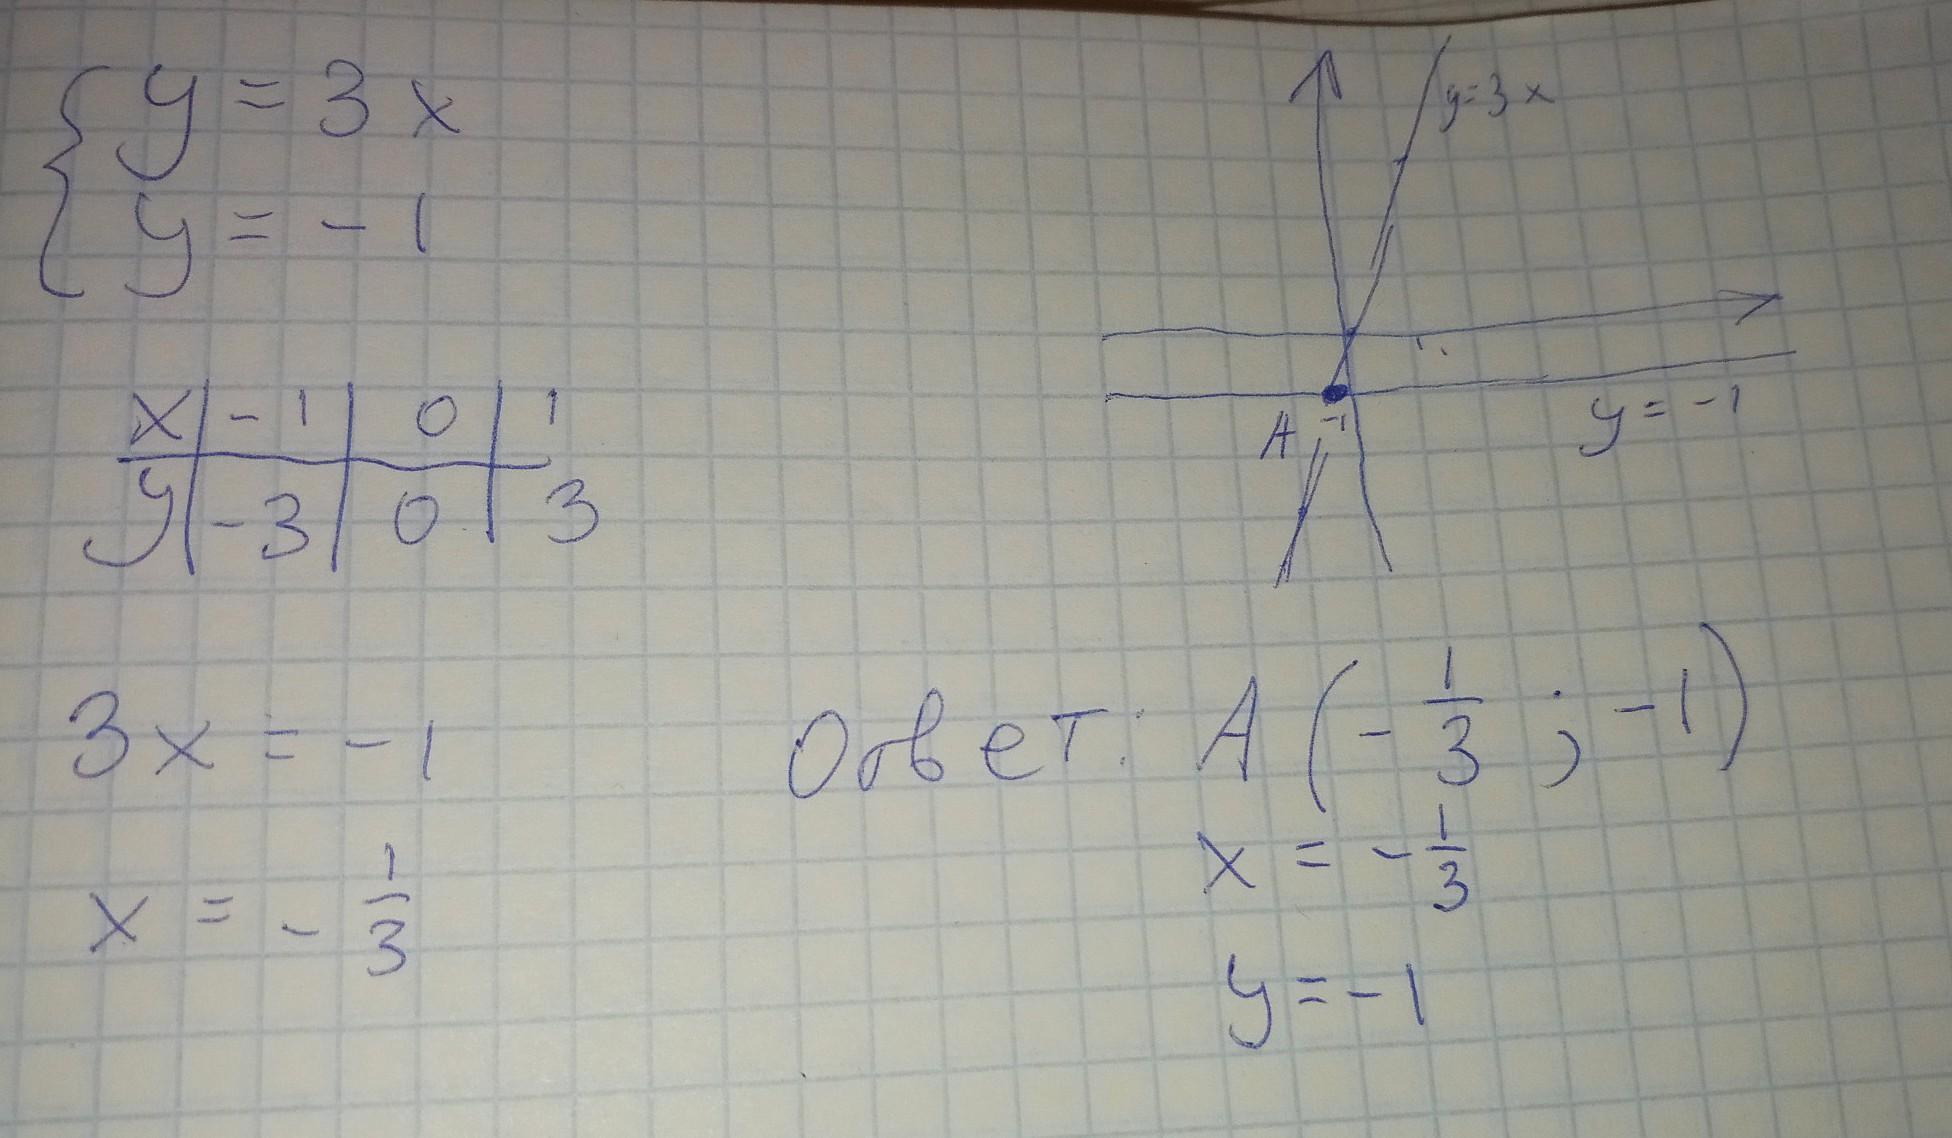 y = 3x
y = -1
x | -1 | 0 | 1
y | -3 | 0 | 3
3x = -1
x = - 1/3
y=3x
A -1
y = -1
Ответ: A (- 1/3 ; -1)
x = - 1/3
y = -1